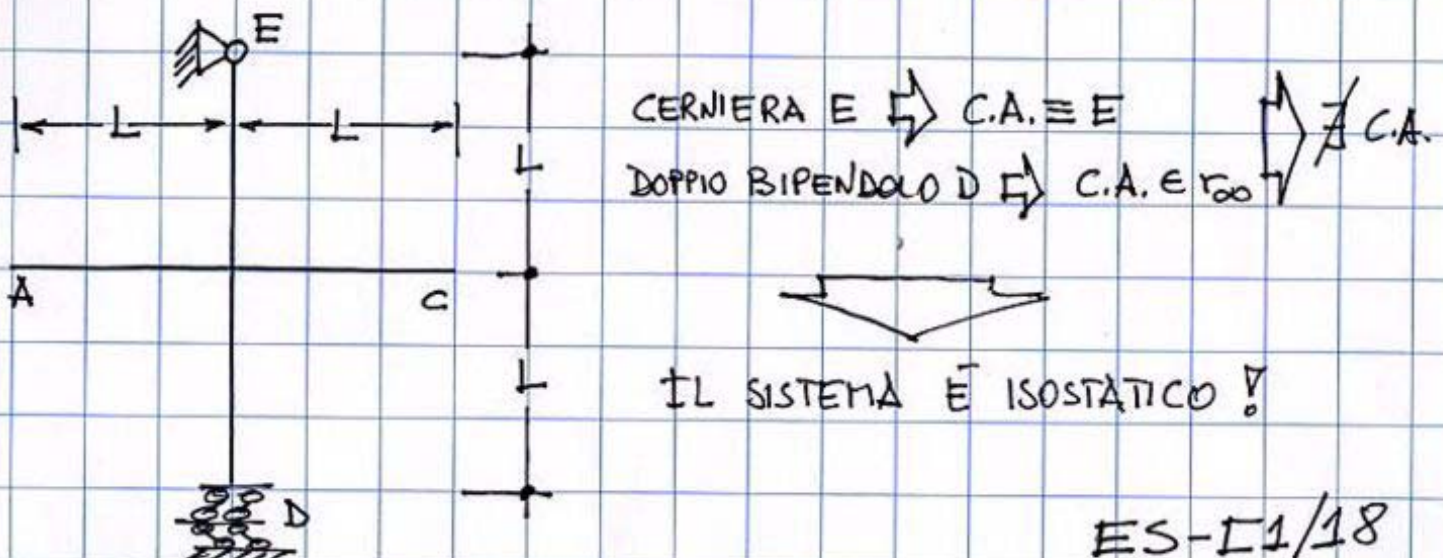 E
L L
L
CERNIERA E ⇒ C.A. ≡ E
DOPPIO BIPENDOLO D ⇒ C.A. ∈ r∞
⇒ ∄ C.A.
A C
L
IL SISTEMA È ISOSTATICO !
D
ES-I1/18